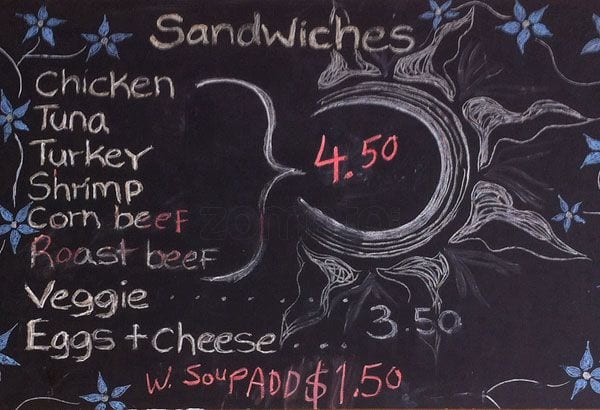 Sandwiches
Chicken
Tuna
Turkey
Shrimp
Corn beef
Roast beef
4.50
Veggie . . . . . . . .
Eggs + cheese . . . . 3.50
W. Soup ADD $1.50